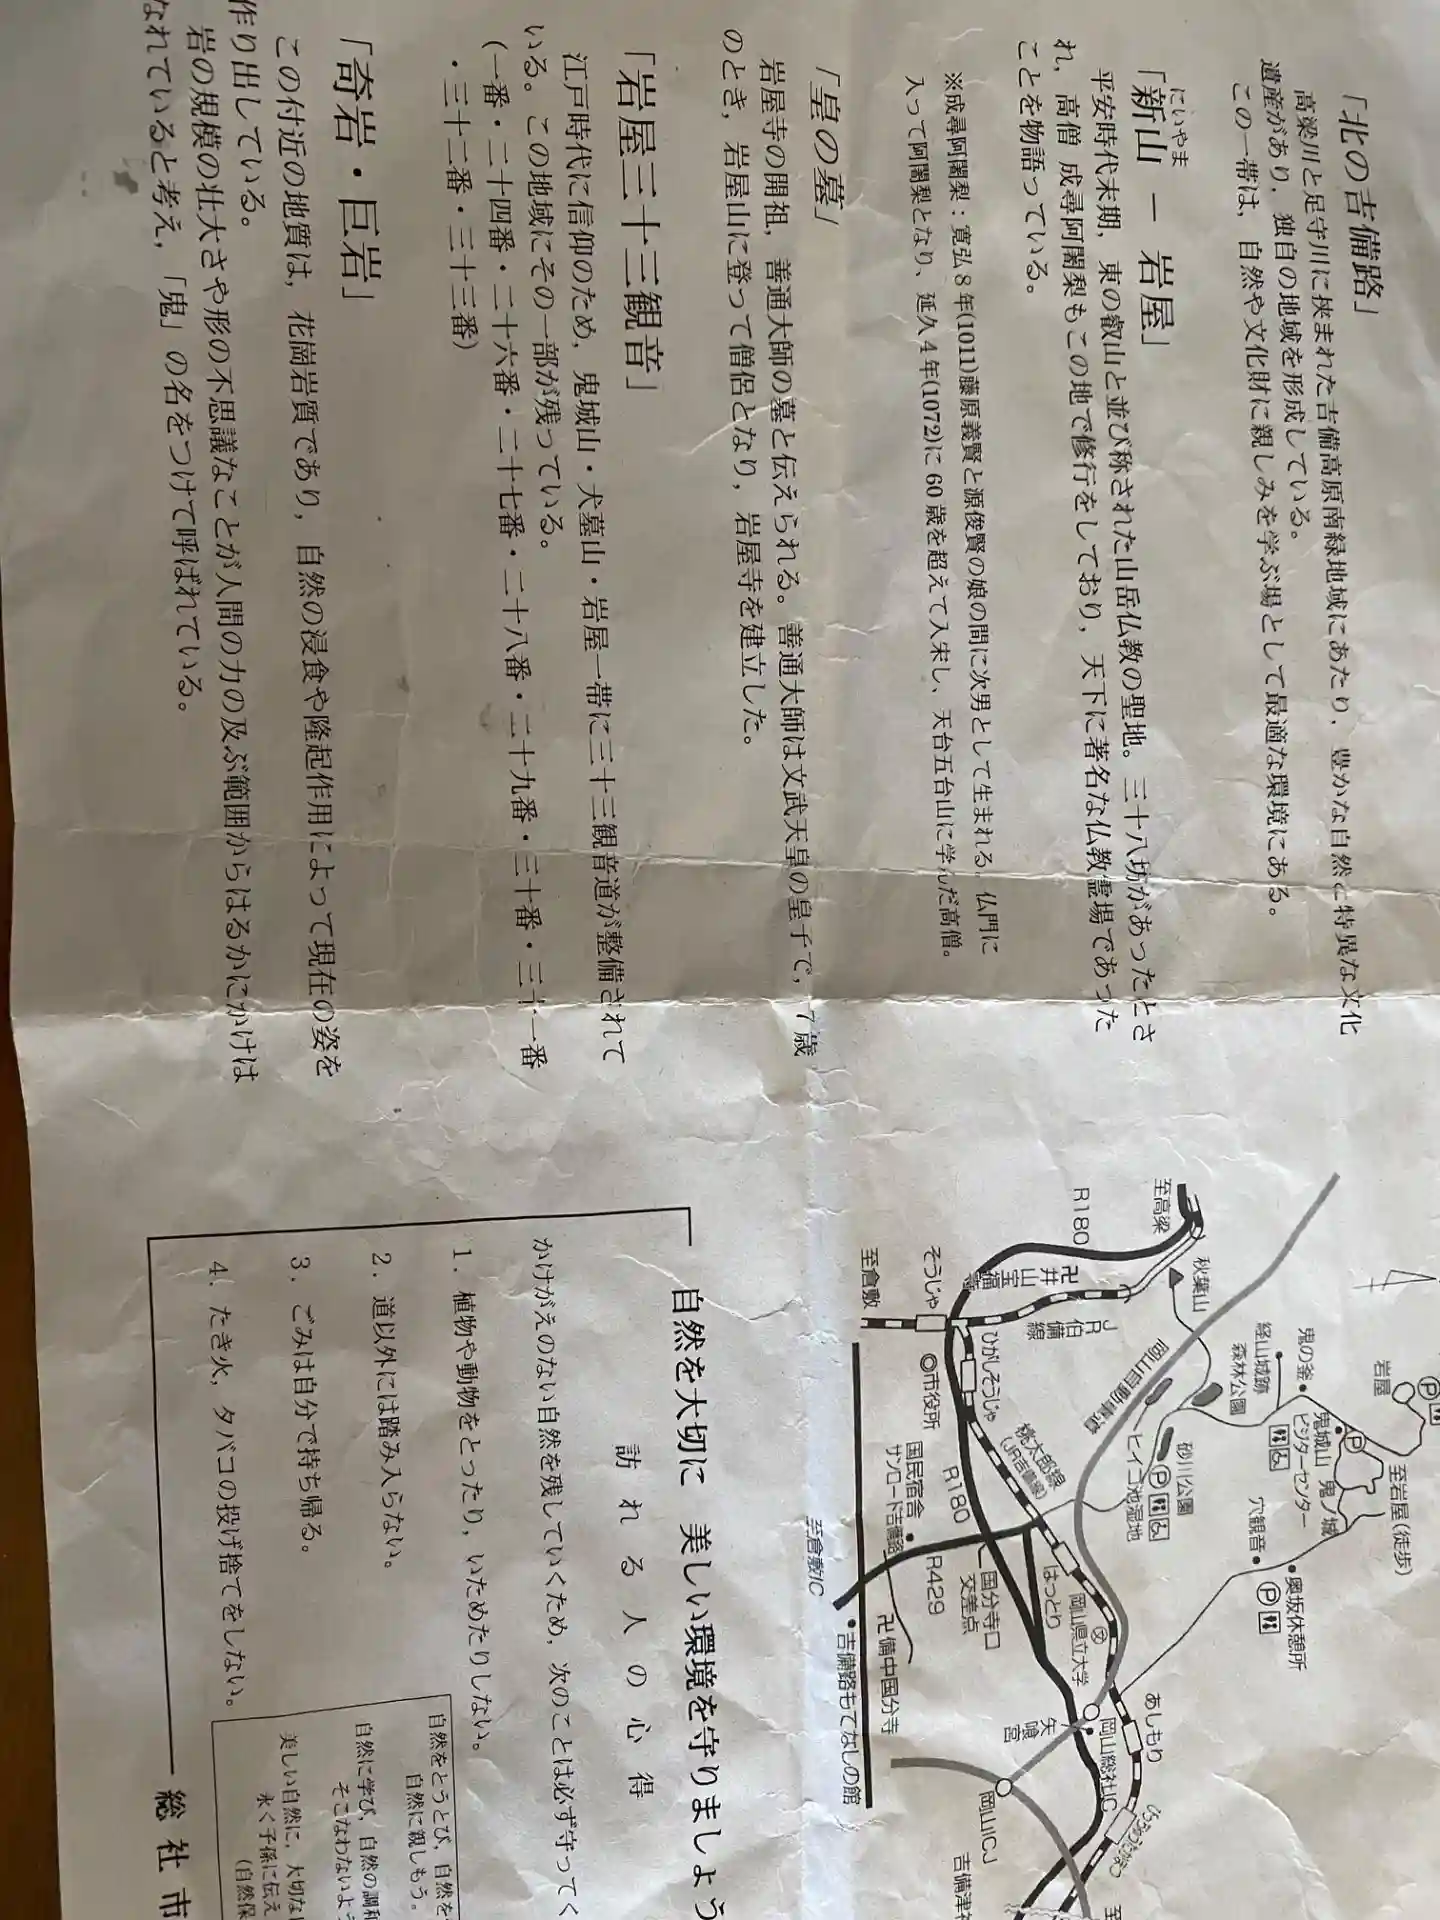 「北の吉備路」
高梁川と足守川に挟まれた吉備高原南縁地域にあたり，豊かな自然と特異な文化
遺産があり，独自の地域を形成している。
この一帯は，自然や文化財に親しみを学ぶ場として最適な環境にある。
にいやま
「新山 － 岩屋」
平安時代末期，東の叡山と並び称された山岳仏教の聖地。三十八坊があったとさ
れ，高僧 成尋阿闍梨もこの地で修行をしており，天下に著名な仏教霊場であった
ことを物語っている。
※成尋阿闍梨：寛弘8年(1011)藤原義賢と源俊賢の娘の間に次男として生まれる。仏門に
入って阿闍梨となり、延久4年(1072)に60歳を超えて入宋し、天台五台山に学んだ高僧。
「皇の墓」
岩屋寺の開祖，善通大師の墓と伝えられる。善通大師は文武天皇の皇子で，7歳
のとき，岩屋山に登って僧侶となり，岩屋寺を建立した。
「岩屋三十三観音」
江戸時代に信仰のため，鬼城山・犬墓山・岩屋一帯に三十三観音道が整備されて
いる。この地域にその一部が残っている。
(一番・二十四番・二十六番・二十七番・二十八番・二十九番・三十番・三十一番
・三十二番・三十三番)
「奇岩・巨岩」
この付近の地質は，花崗岩質であり，自然の浸食や隆起作用によって現在の姿を
作り出している。
岩の規模の壮大さや形の不思議なことが人間の力の及ぶ範囲からはるかにかけは
なれていると考え，「鬼」の名をつけて呼ばれている。
岩屋
至岩屋(徒歩)
鬼の釜
鬼城山
ビジターセンター
鬼ノ城
経山城跡
森林公園
穴観音
奥坂休憩所
秋葉山
至高梁
砂川公園
ヒイゴ池湿地
岡山自動車道
R180
井山宝福寺
JR伯備線
そうじゃ
ひがしそうじゃ
至倉敷
◎市役所
桃太郎線
(JR吉備線)
R180
国民宿舎
サンロード吉備路
R429
国分寺口
交差点
はっとり
岡山県立大学
あしもり
岡山総社IC
矢喰宮
岡山JCT
卍備中国分寺
至倉敷IC
吉備路もてなしの館
吉備津神
自然を大切に 美しい環境を守りましょう
訪れる人の心得
かけがえのない自然を残していくため，次のことは必ず守ってく
1．植物や動物をとったり，いためたりしない。
2．道以外には踏み入らない。
3．ごみは自分で持ち帰る。
4．たき火，タバコの投げ捨てをしない。
自然をとうとび，自然を
自然に親しもう。
自然に学び，自然の調和
そこなわないよう
美しい自然に，大切な
永く子孫に伝え
(自然保
総社市